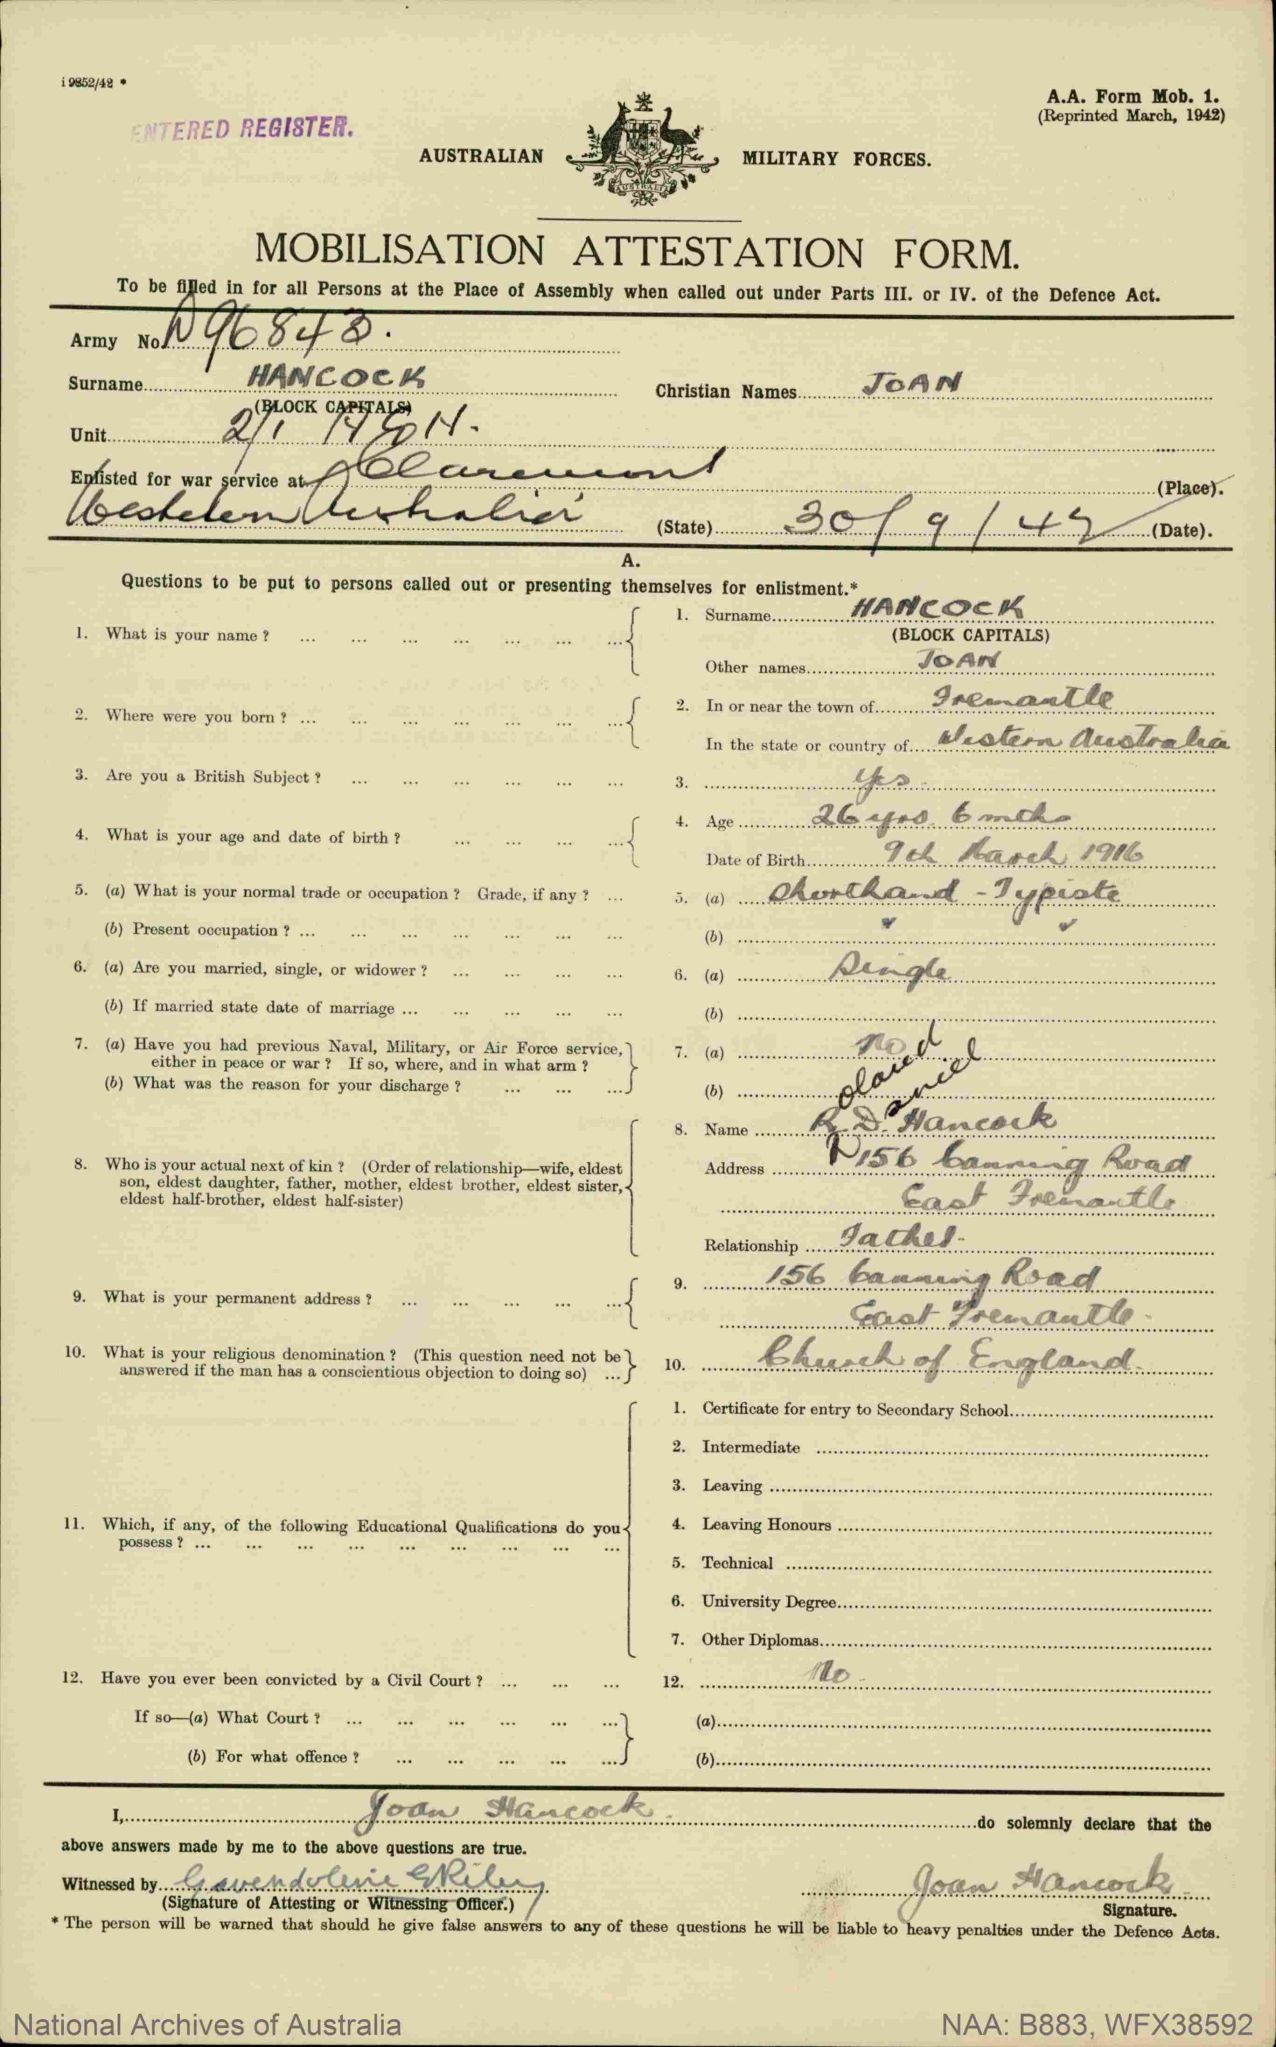 i 9852/42 *
A.A. Form Mob. 1.
(Reprinted March, 1942)
ENTERED REGISTER.
AUSTRALIAN MILITARY FORCES.
AUSTRALIA
MOBILISATION ATTESTATION FORM.
To be filled in for all Persons at the Place of Assembly when called out under Parts III. or IV. of the Defence Act.
Army No. 96843.
Surname HANCOCK Christian Names JOAN
(BLOCK CAPITALS)
Unit 2/1
Enlisted for war service at Claremont (Place).
Western Australia (State) 30/9/42 (Date).
A.
Questions to be put to persons called out or presenting themselves for enlistment.*
1. What is your name ? ... 1. Surname HANCOCK
(BLOCK CAPITALS)
Other names JOAN
2. Where were you born ? ... 2. In or near the town of Fremantle
In the state or country of Western Australia
3. Are you a British Subject ? ... 3. Yes
4. What is your age and date of birth ? ... 4. Age 26 yrs 6 mths
Date of Birth 9th March 1916
5. (a) What is your normal trade or occupation ? Grade, if any ? ... 5. (a) Shorthand - Typiste
(b) Present occupation ? ... (b) " "
6. (a) Are you married, single, or widower ? ... 6. (a) Single
(b) If married state date of marriage ... (b)
7. (a) Have you had previous Naval, Military, or Air Force service, 7. (a) No
either in peace or war ? If so, where, and in what arm ?
(b) What was the reason for your discharge ? ... (b)
oland aniel
8. Name R. D. Hancock
8. Who is your actual next of kin ? (Order of relationship—wife, eldest Address 156 Canning Road
son, eldest daughter, father, mother, eldest brother, eldest sister,
eldest half-brother, eldest half-sister) East Fremantle
Relationship Father
9. What is your permanent address ? ... 9. 156 Canning Road
East Fremantle
10. What is your religious denomination ? (This question need not be 10. Church of England
answered if the man has a conscientious objection to doing so) ...
1. Certificate for entry to Secondary School
2. Intermediate
3. Leaving
11. Which, if any, of the following Educational Qualifications do you 4. Leaving Honours
possess ? ...
5. Technical
6. University Degree
7. Other Diplomas
12. Have you ever been convicted by a Civil Court ? ... 12. No
If so—(a) What Court ? ... (a)
(b) For what offence ? ... (b)
I, Joan Hancock do solemnly declare that the
above answers made by me to the above questions are true.
Witnessed by Gwendoline G Riley Joan Hancock
(Signature of Attesting or Witnessing Officer.) Signature.
* The person will be warned that should he give false answers to any of these questions he will be liable to heavy penalties under the Defence Acts.
National Archives of Australia NAA: B883, WFX38592